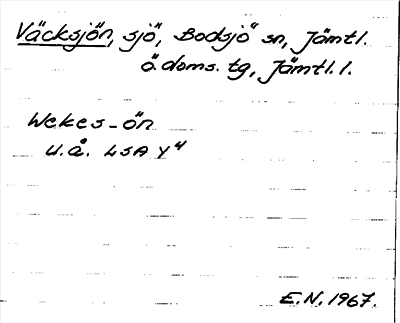 Väcksjön, sjö, Bodsjö sn, Jämtl.
ö. doms. tg, Jämtl. l.
Wekes-ön
u.å. LSA Y4
E.N. 1967.